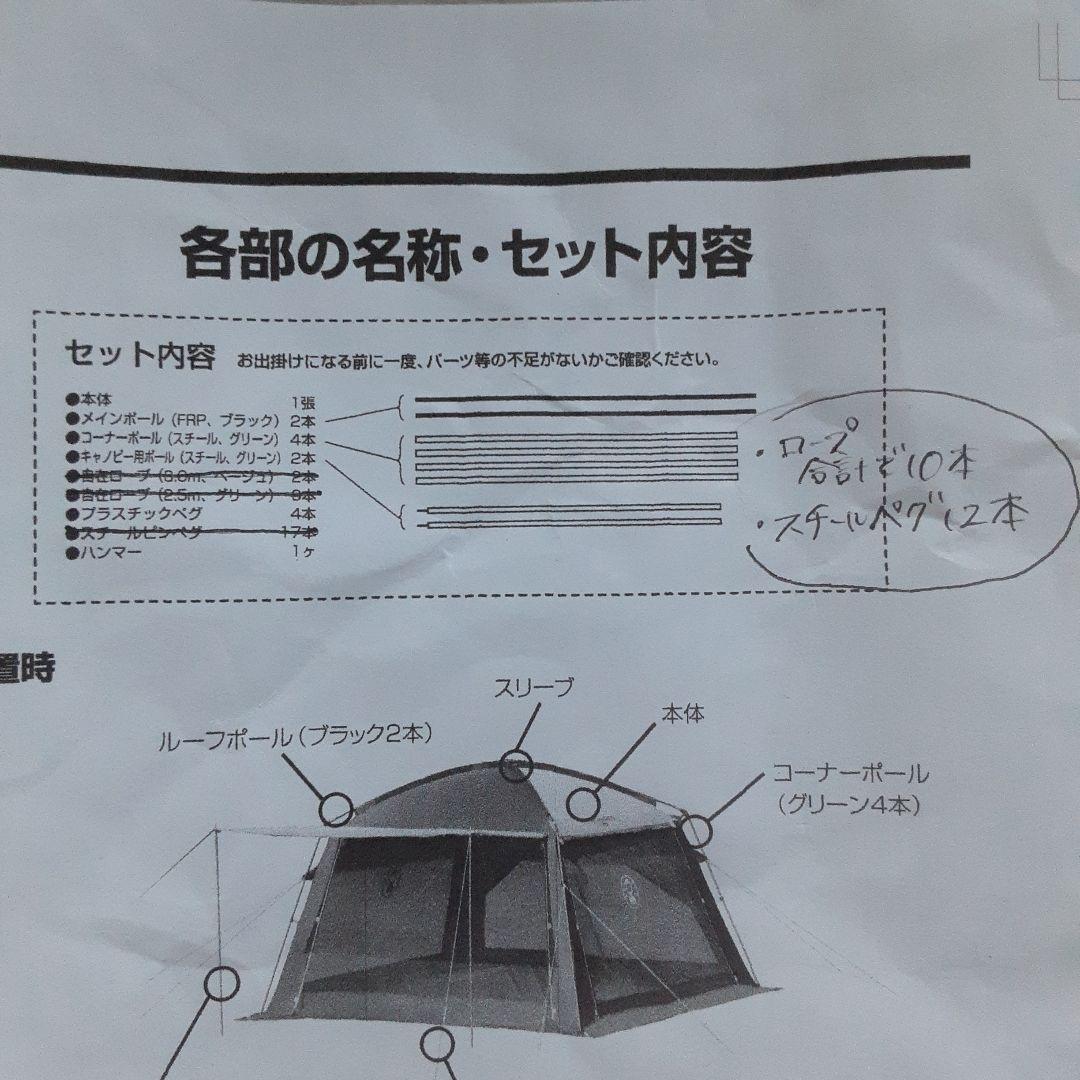 各部の名称・セット内容
セット内容 お出掛けになる前に一度、パーツ等の不足がないかご確認ください。
●本体 1張
●メインポール（FRP、ブラック） 2本
●コーナーポール（スチール、グリーン） 4本
●キャノピー用ポール（スチール、グリーン） 2本
●自在ロープ（3.0m、ベージュ） 2本
●自在ロープ（2.5m、グリーン） 8本
●プラスチックペグ 4本
●スチールピンペグ 17本
●ハンマー 1ヶ
・ロープ
合計で10本
・スチールペグ12本
置時
スリーブ
本体
ルーフポール（ブラック2本）
コーナーポール
（グリーン4本）